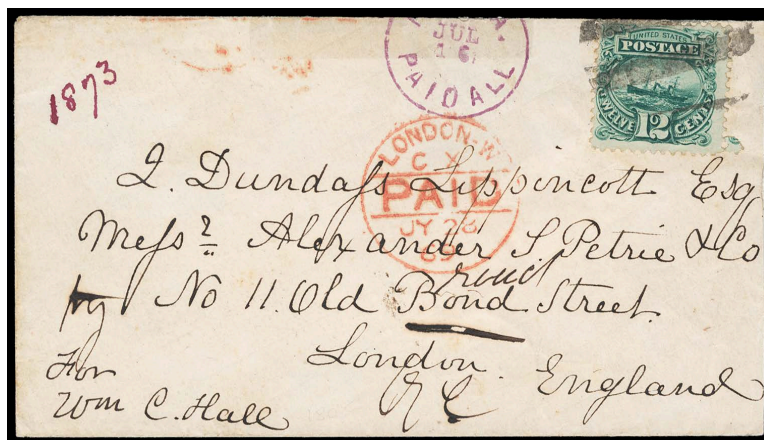 1873
JUL
16
PAID ALL
UNITED STATES
POSTAGE
TWELVE 12 CENTS
LONDON-W
C X
PAID
JY 28
69
J. Dundass Lippincott Esq
Mess Alexander S. Petrie & Co
No 11. Old Bond Street.
London. England
E C
For
Wm C. Hall